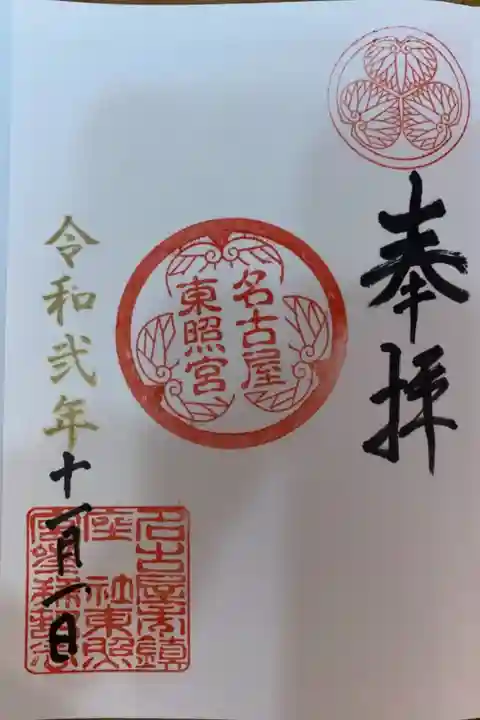 奉拝
名古屋
東照宮
令和弐年十一月一日